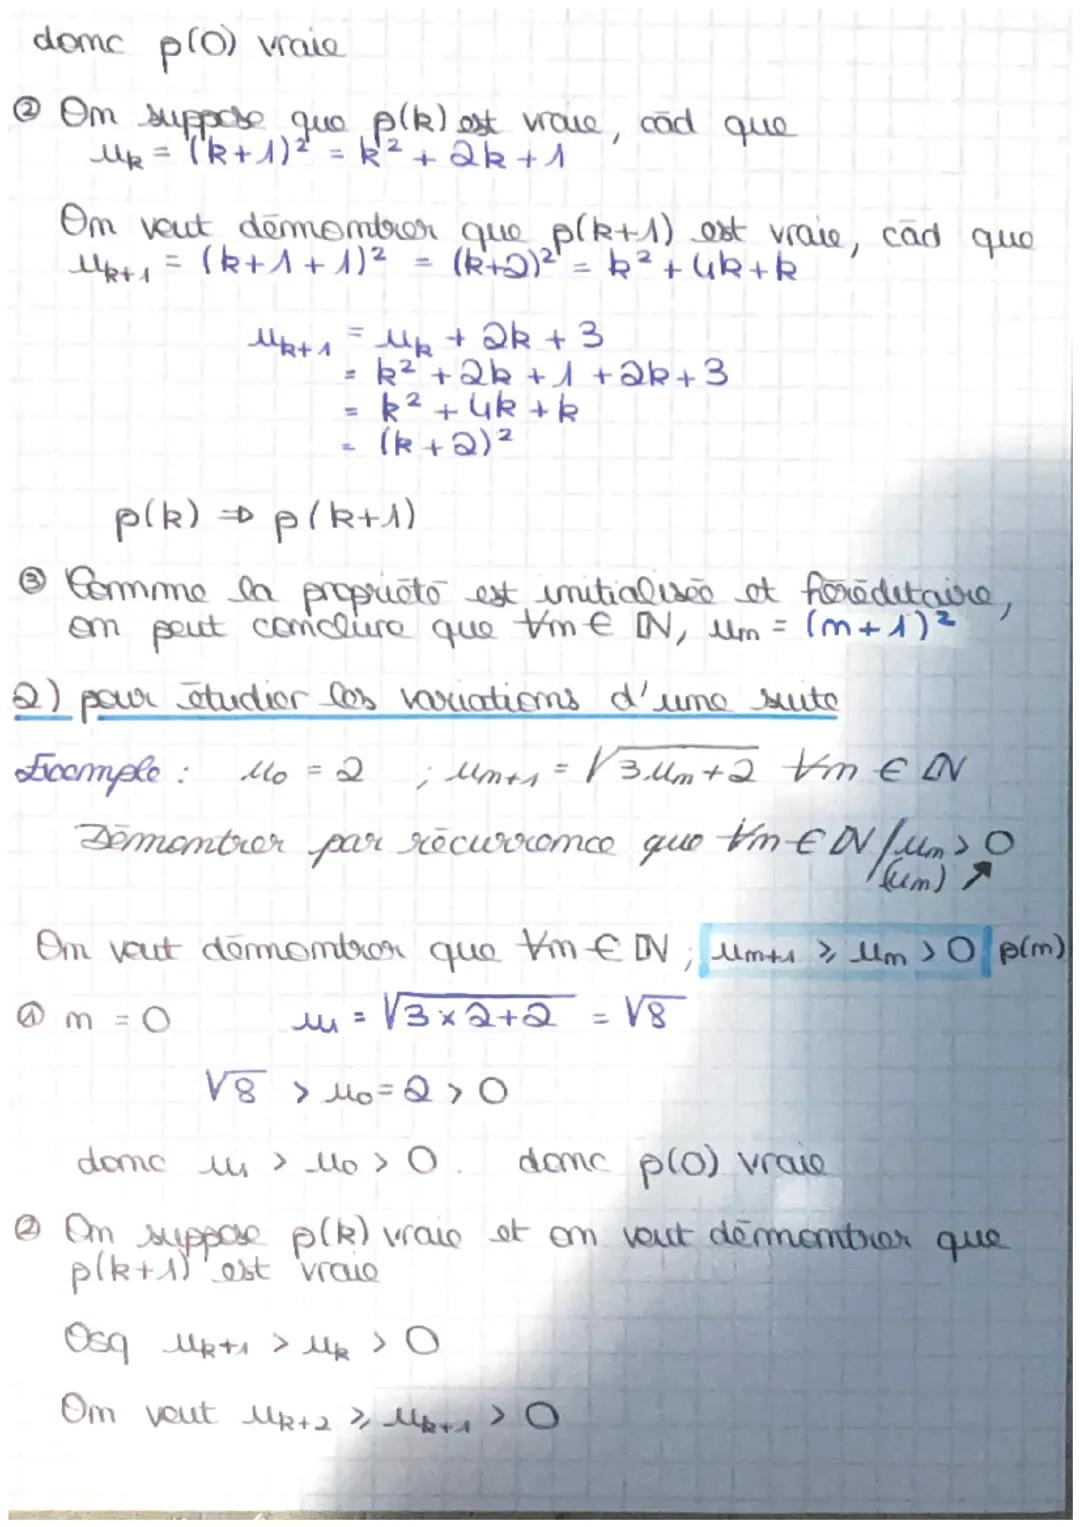 donc p(0) vraie
② On suppose que p(k) est vraie, càd que
u_k = (k+1)² = k² + 2k + 1
On veut démontrer que p(k+1) est vraie, càd que
u_{k+1} = (k+1+1)² = (k+2)² = k² + 4k + k
u_{k+1} = u_k + 2k + 3
= k² + 2k + 1 + 2k + 3
= k² + 4k + k
= (k+2)²
p(k) ⇒ p(k+1)
③ Comme la propriété est initialisée et héréditaire,
on peut conclure que ∀n ∈ ℕ, u_n = (n+1)²
2) pour étudier les variations d'une suite
Exemple : u_0 = 2 ; u_{n+1} = √(3u_n+2) ∀n ∈ ℕ
Démontrer par récurrence que ∀n ∈ ℕ / u_n > 0
(u_n) ↗
On veut démontrer que ∀n ∈ ℕ ; u_{n+1} ⩾ u_n > 0 p(n)
① n = 0 u_1 = √(3×2+2) = √8
√8 > u_0 = 2 > 0
donc u_1 > u_0 > 0. donc p(0) vraie
② On suppose p(k) vraie et on veut démontrer que
p(k+1) est vraie
Osq u_{k+1} > u_k > 0
On veut u_{k+2} ⩾ u_{k+1} > 0